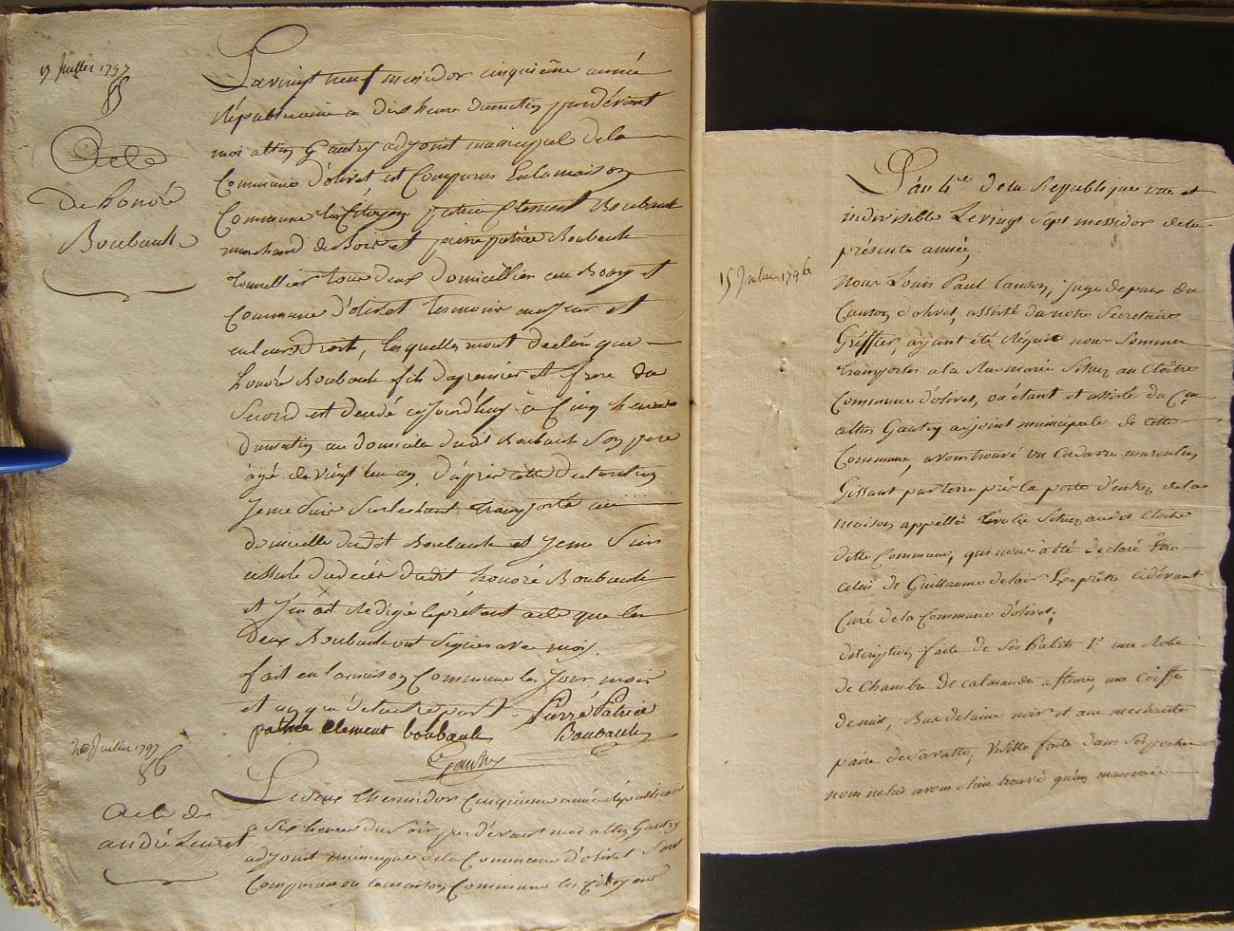 17 Juillet 1797
85
Acte
De honoré
Boubault
Le vingt neuf messidor cinquième année
Républicaine a dix heure du matin pardevant
moi Gautry adjoint municipal de la
Commune d'olivet est Comparu En la maison
Commune les Citoyens patrice Clement Boubault
marchand de Bois et pierre patrice Boubault
tonnellier tous deux domicillier au Bourg et
Commune d'olivet temoins majeur et
en leurs Droit, lesquelles mont declaré que
honoré Boubault fils du premier et frere du
Second est decedé ce jourd'huy à Cinq heures
du matin au domicile dudit Boubault Son pere
agé de vingt un an, d'après cette declaration
Je me suis Sur le champ transporté au
domicille dudit Boubault et Je me Suis
assuré du decès dudit honoré Boubault
et J'en ait Redigé le présent acte que les
deux Boubault ont Signés avec moi.
fait en la maison Commune les Jour mois
et an que d'autre part
Pierre Patrice
Boubault
patrice clement boubault
Gautry
20 Juillet 1797
86
Acte de
andré
Le deux thermidor Cinquième année républicaine
a Six heures du Soir par devant moi Gautry
adjoint municipal de la Commune d'olivet Sont
Comparu en la maison Commune les Citoyens
15 Juillet 1796
L'an 4e de la Republique une et
indivisible Le vingt Sept messidor de la
présente année,
Nous Louis Paul juge de paix du
Canton d'olivet, assisté de notre Secretaire
Greffier, ayant été Réquis nous Sommes
transportés a la au Cloître
Commune d'olivet, où étant et assisté du Cen
Gautry adjoint municipale de cette
Commune, avons trouvé un Cadavre masculin
Gissant par terre près la porte d'entrée de la
maison appellée audit Cloitre
ditte Commune, qui nous a été declaré Être
celui de Guillaume Exprêtre cidevant
Curé de la Commune d'olivet;
description faite de Ses habits 1° une Robe
de Chambre de calmande a fleurs, une Coiffe
de nuit, Bas de laine noir et une mechante
paire de Savattes, visitte faite dans Ses poches
nous ne lui avons trouvé qu'un mauvais